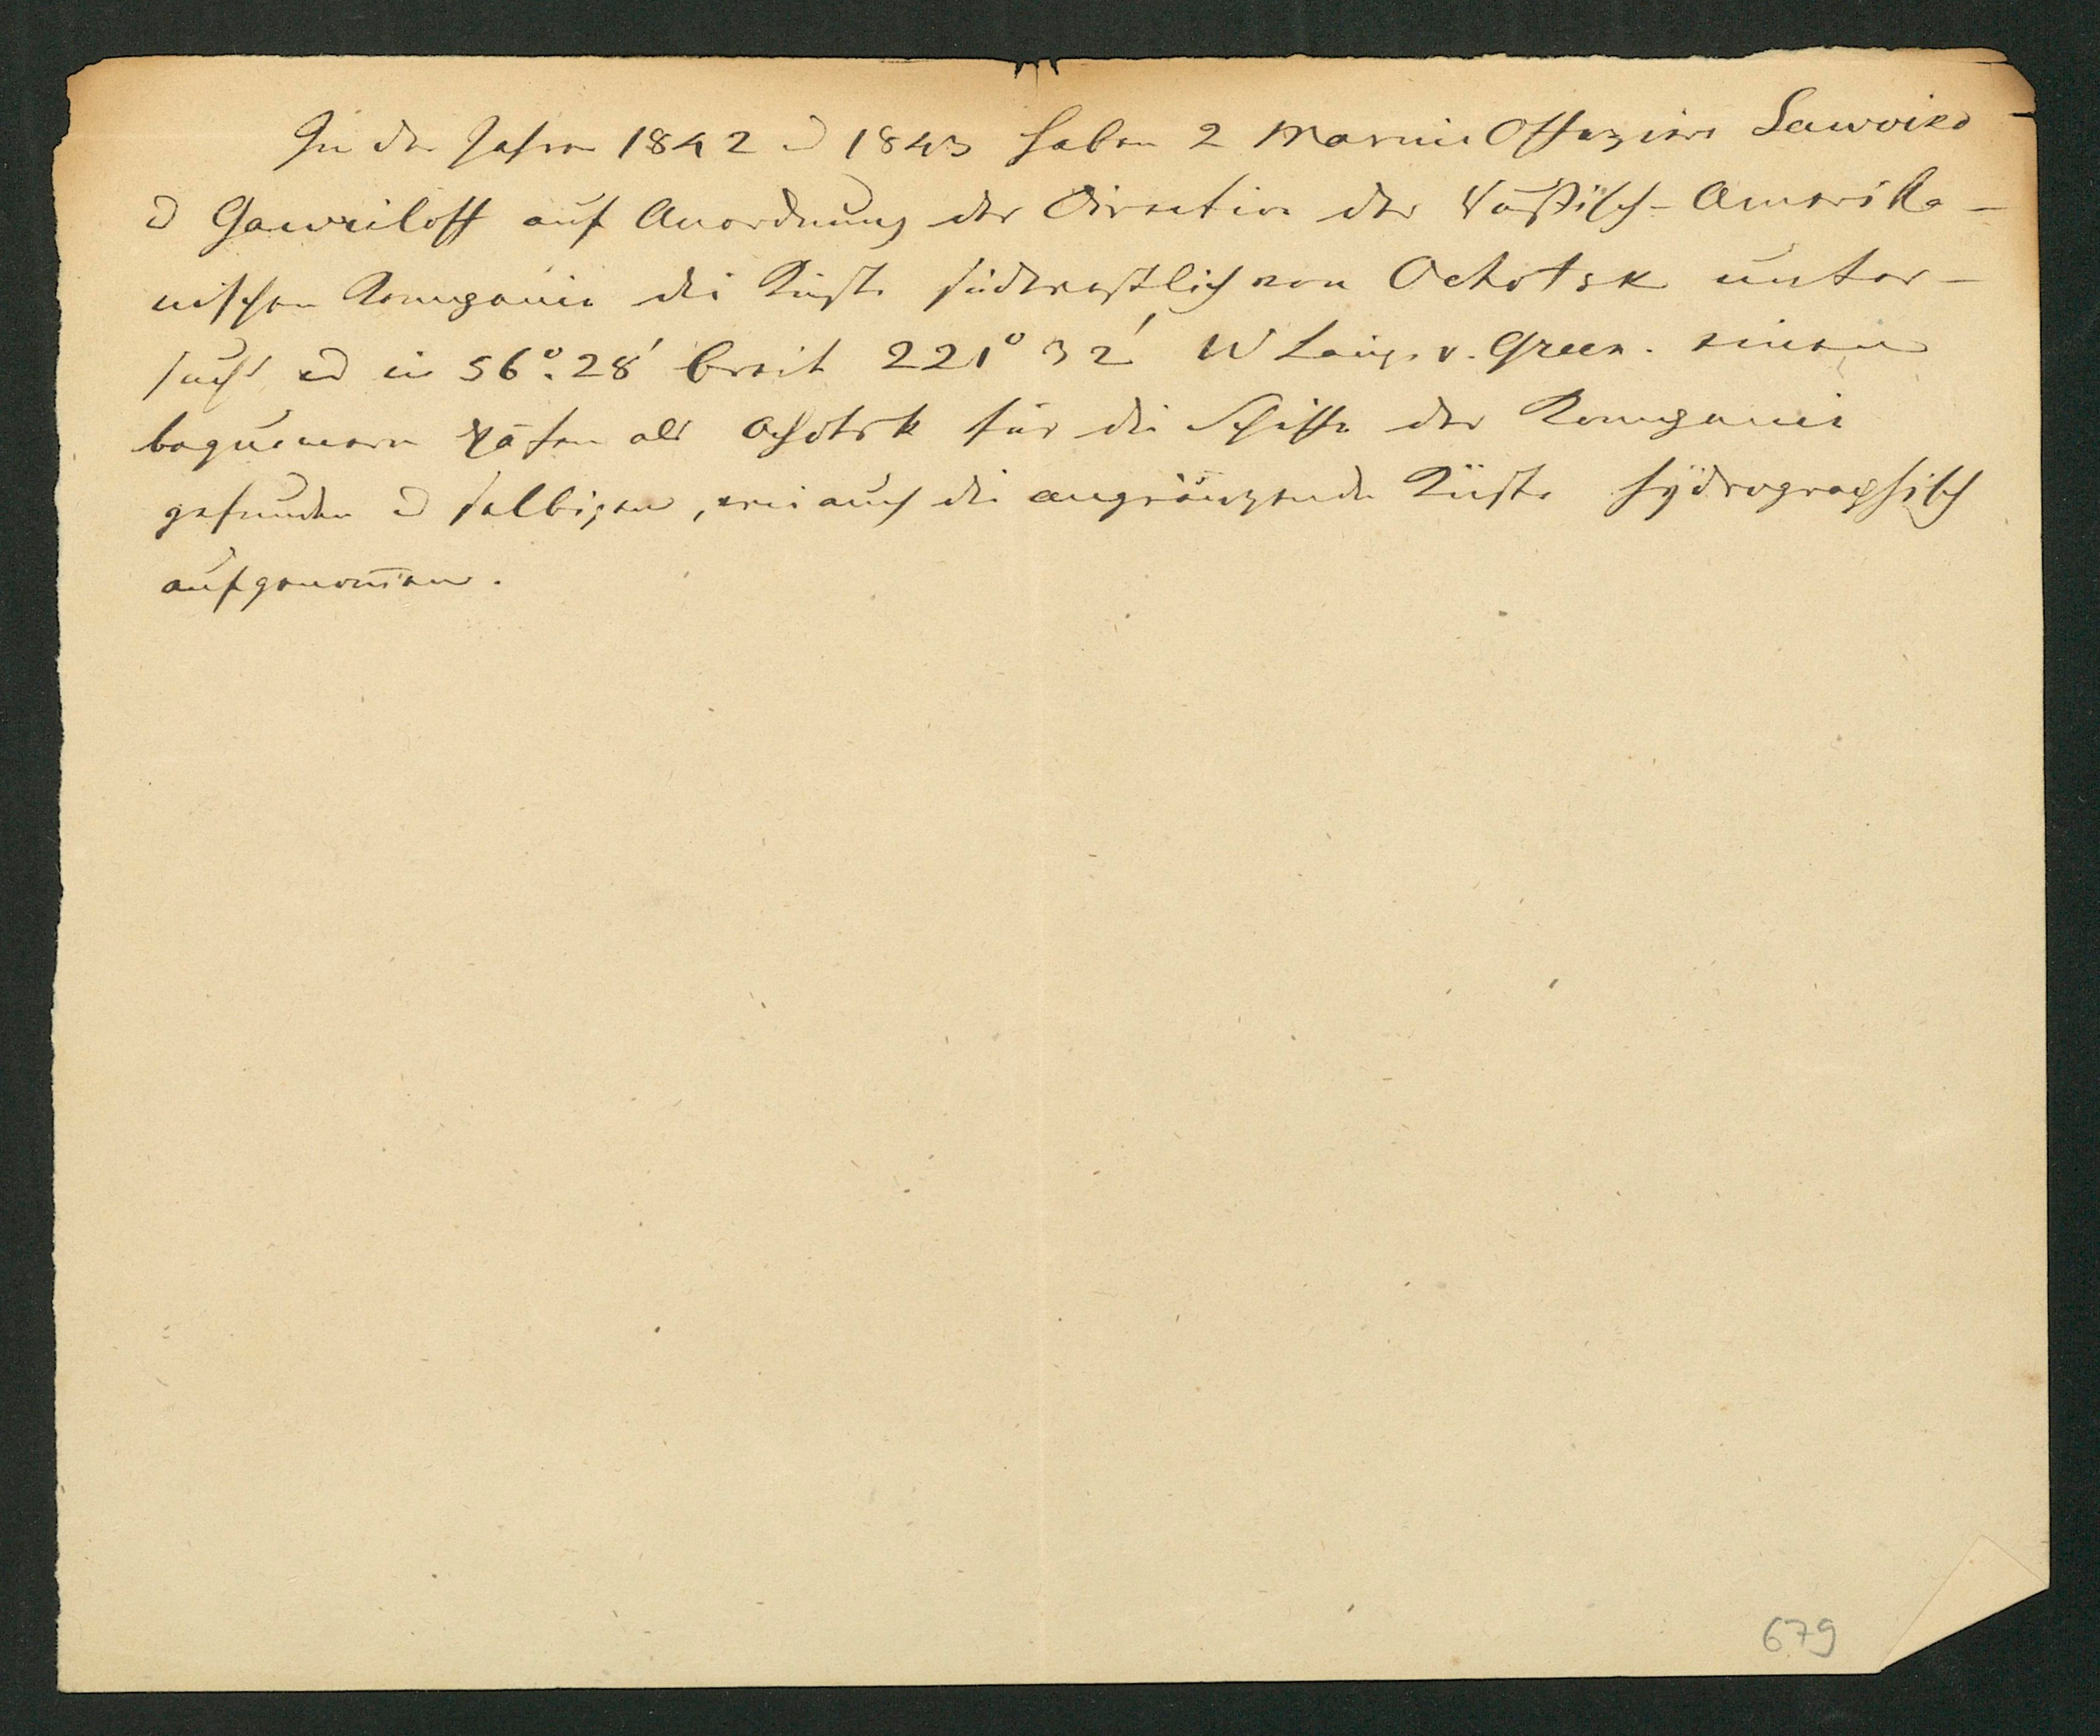 In den Jahren 1842 u 1843 haben 2 Marine Offiziere Sawoiko
u Gawriloff auf Anordnung der Direction der Rußisch-Amerika-
nischen Kompanie die Küste südwestlich von Ochotsk unter-
sucht u in 56°.28' breit 221° 32' W Läng. v. Green. einen
bequemern Hafen als Ochotsk für die Schiffe der Kompanie
gefunden u selbigen, wie auch die angränzende Küste hÿdrographisch
aufgenom̄en.
679